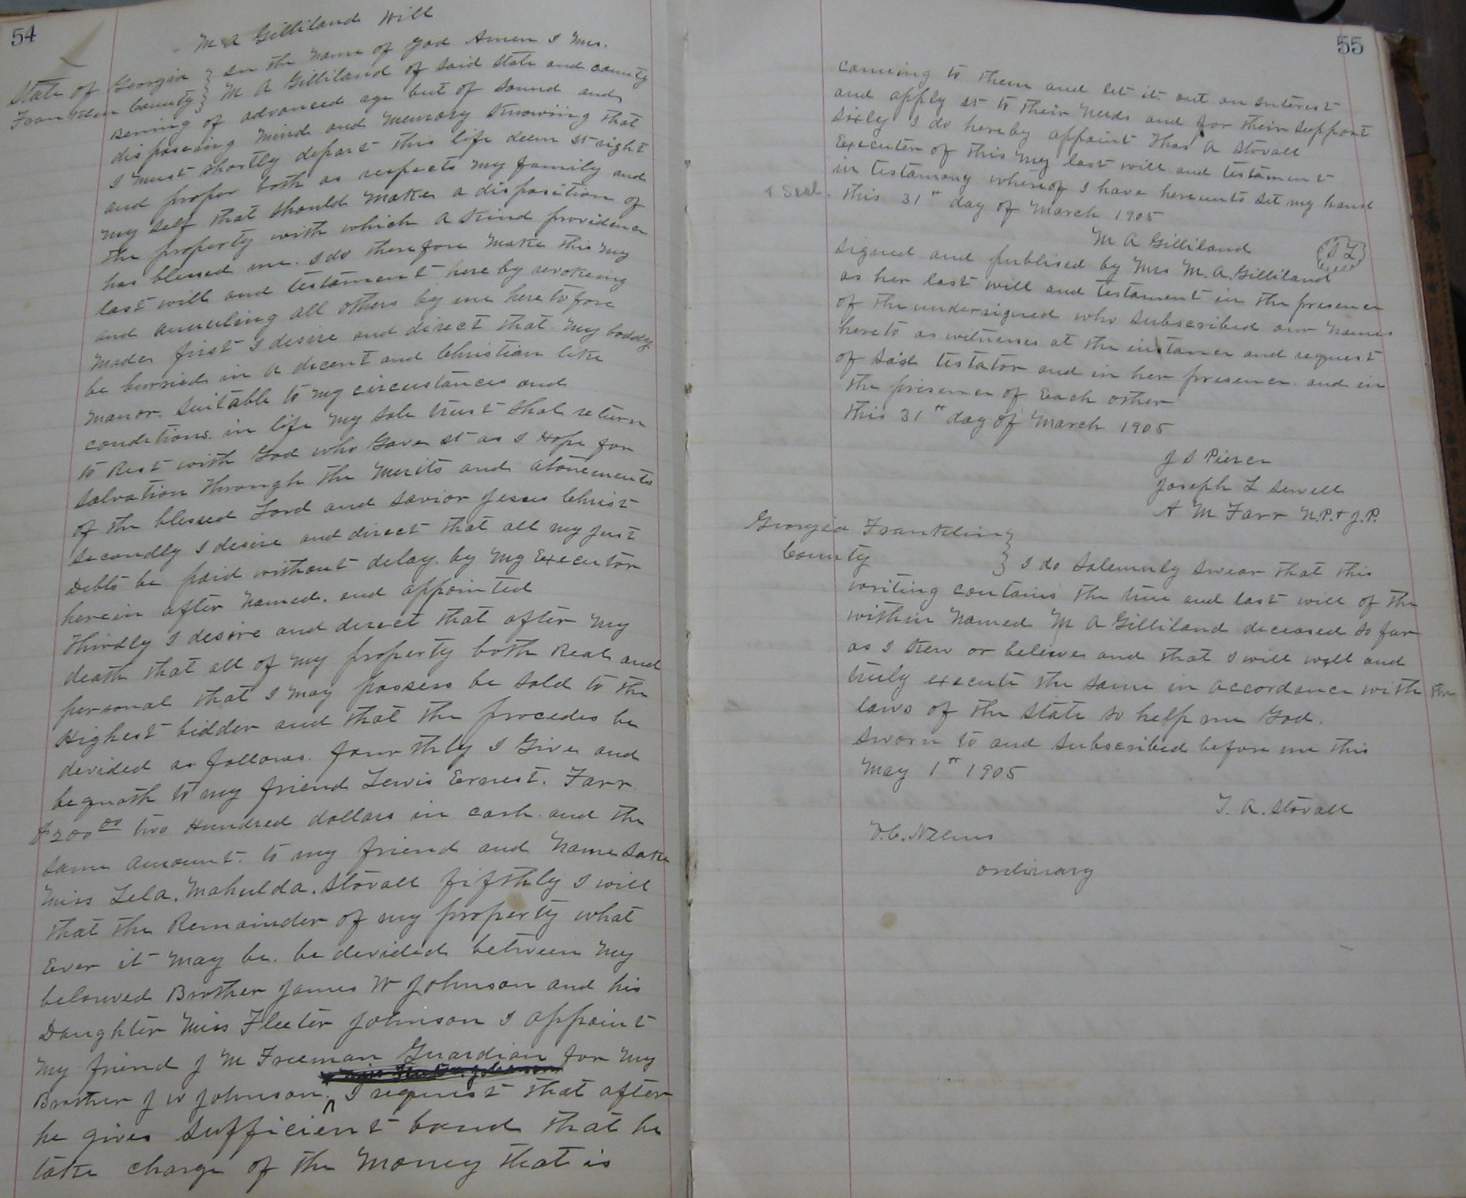 54
M A Gilliland Will
State of Georgia } In the name of God Amen I Mrs.
Franklin County } M A Gilliland of said state and county
being of advanced age but of sound and
disposeing mind and memory knowing that
I must shortly depart this life deem it right
and proper both as respects my family and
my self that should make a disposition of
the property with which a kind providence
has blessed me. I do therefore make this my
last will and testament here by revokeing
and annuling all others by me here to fore
made first I desire and direct that my boddy
be burried in a decent and Christian like
manor suitable to my circumstances and
conditions in life my sole trust shal return
to Rest with God who Gave it as I Hope for
salvation through the merits and atonements
of the blessed Lord and Savior Jesus Christ
Secondly I desire and direct that all my just
Debts be paid without delay by my Executor
herein after named. and appointed
Thirdly I desire and direct that after my
death that all of my property both Real and
personal that I may possess be sold to the
Highest bidder and that the procedes be
devided as follows. fourthly I Give and
bequoth to my friend Lewis Ernest. Farr
$200 00 two Hundred dollars in cash and the
same amount to my friend and name sake
Miss Lela. Mahulda. Stovall fifthly I will
that the Remainder of my property what
Ever it may be. be devided between my
beloved Brother James W Johnson and his
Daughter Miss Fleeter Johnson I appoint
my friend J M Freeman Guardian for my
Brother J W Johnson, I request that after
he gives sufficient bond that he
take charge of the money that is
55
comeing to them and let it out on interest
and apply it to their needs and for their support
Sixly I do hereby appoint Thos A Stovall
Executor of this my last will and testament
in testamony whereof I have hereunto set my hand
& Seal. this 31st day of March 1905
M A Gilliland
Signed and publised by Mrs M. A. Gilliland
as her last will and testament in the presence
of the undersigned who subscribed our names
hereto as witnesses at the instance and request
of said testator and in her presence and in
the presence of Each other
this 31st day of March 1905
J S Pierce
Joseph L Sewell
A M Farr N.P. & J.P.
Georgia Franklin }
County } I do Solemnly swear that this
writing contains the true and last will of the
within named M A Gilliland deceased so far
as I know or believe and that I will well and
truly execute the same in accordance with the
laws of the State so help me God.
Sworn to and subscribed before me this
May 1st 1905
T. A. Stovall
ordinary